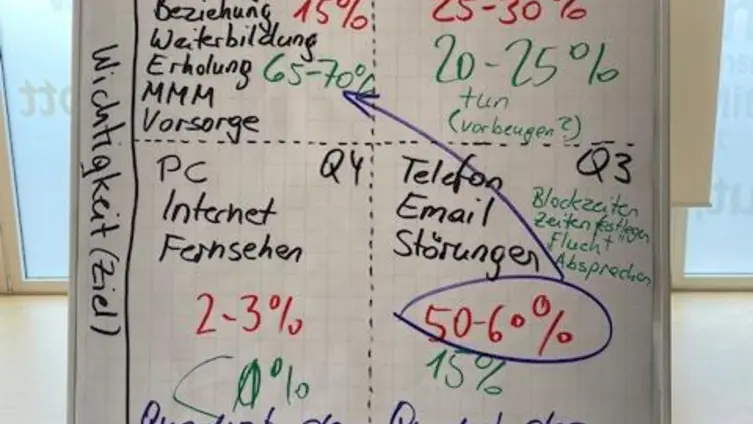 Beziehung 15%
Weiterbildung
Erholung 65-70%
MMM
Vorsorge
25-30%
20-25%
tun
(vorbeugen?)
Wichtigkeit (Ziel)
PC Q4
Internet
Fernsehen
2-3%
Telefon Q3
Email
Störungen
Blockzeiten
Zeiten festlegen
Flucht
Absprechen
50-60%
15%